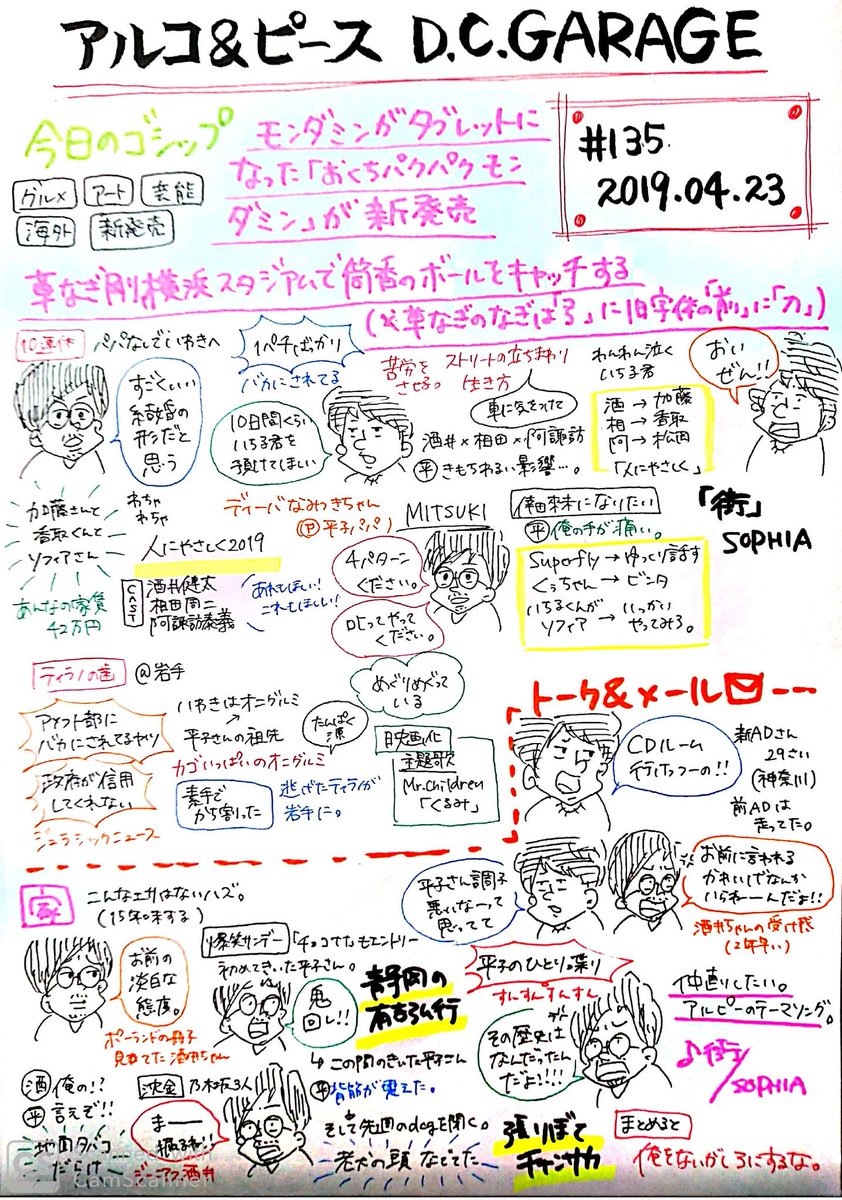 アルコ&ピース D.C.GARAGE
今日のゴシップ
グルメ アート 芸能
海外 新発売
モンダミンがタブレットに
なった「おくちパクパクモン
ダミン」が新発売
#135
2019.04.23
草なぎ剛横浜スタジアムで筒香のボールをキャッチする
10連休
パパなしでいわきへ
すごくいい
結婚の
形だと
思う
1ペチばっかり
バカにされてる
10日間くらい
いちる君を
預けてほしい
苦労を
させる。
ストリートの立ちまわり
生き方
車に気をつけて
酒井×相田×阿諏訪
㊥きもちわるい影響…。
わんわん泣く
いちる君
酒→加藤
相→香取
阿→松岡
「人にやさしく」
おい
ぜん!!
加藤さんと
香取くんと
ソフィアさん
わちゃ
わちゃ
人にやさしく2019
あんなの家賃
42万円
CAST
酒井健太
相田周二
阿諏訪泰義
あれもほしい!
これもほしい!
ディーバなみつきちゃん
(P平子パパ)
MITSUKI
4パターン
ください。
叱ってやって
ください。
倖田來未になりたい
俺の手が痛い。
Superfly→ゆっくり話す
くぅちゃん→ビンタ
いちるくんが ソフィア→いっかい やってみろ。
「街」
SOPHIA
ティラノの歯
@岩手
アメフト部に
バカにされてるヤツ
政府が信用
してくれない
ジュラシックニュース
いわきはオニグルミ
平子さんの祖先
カゴいっぱいのオニグルミ
たんぱく
源
素手で
かち割った
逃げたティラノが
岩手に。
めぐりめぐって
いる
映画化
主題歌
Mr.Children
「くるみ」
トーク&メール
CDルーム
行けっつーの!!
新ADさん
29さい
(神奈川)
前ADは
走ってた。
平子さん調子
悪いなーって
思ってて
お前に言われる
かわいいでなんか
いられーんだよ!!
酒井ちゃんの受け感
こんなエサはないハズ。
(15年味する)
お前の
淡白な
態度。
ポーランドの冊子
見かてた酒井ちゃん
爆笑サンデー
「チョコナナもエントリー
初めてきいた平子さん。
鬼
回し!!
静岡の
有吉弘行
この間のきいた平子さん
背筋が凍えた。
平子のひとり喋り
すんすんすんすん
その歴史は
なんだったん
だよ!!!!
仲直りしたい。
アルピーのテーマソング。
♪街
SOPHIA
酒 俺の!?
平 言えぞ!!
地面タバコ…
だらけ
沈金
乃木坂3人
まー
掘るわ!!
ジーニアス酒井
そして先週のdogを聞く。
老犬の頭なでてた
張りぼて
チャンサカ
まとめると
俺をないがしろにするな。